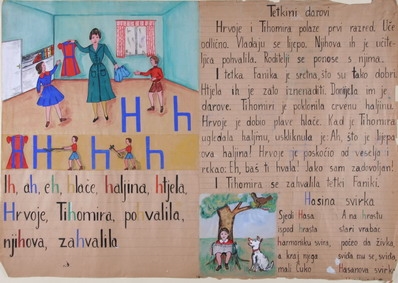 H h
H h h
Ih, ah, eh, hlače, haljina, htjela,
Hrvoje, Tihomira, po valila,
njihova, zahvalila
Tetkini darovi
Hrvoje i Tihomira polaze prvi razred. Uče
odlično. Vladaju se lijepo. Njihova ih je učite-
ljica pohvalila. Roditelji se ponose s njima.
I tetka Fanika je sretna, što su tako dobri.
Htjela ih je zato iznenaditi. Donijela im je
darove. Tihomiri je poklonila crvenu haljinu.
Hrvoje je dobio plave hlače. Kad je Tihomira
ugledala haljinu, uskliknula je: Ah, što je lijepa
ova haljina! Hrvoje je poskočio od veselja i
rekao: Eh, baš ti hvala! Jako sam zadovoljan!
I Tihomira se zahvalila tetki Faniki.
Hasina svirka
Sjedi Hasa
ispod hrasta
harmoniku svira,
a kraj njega
mali Cuko
A na hrastu
stari vrabac
počeo da živka,
sviđa mu se, sviđa,
Hasanova svirka